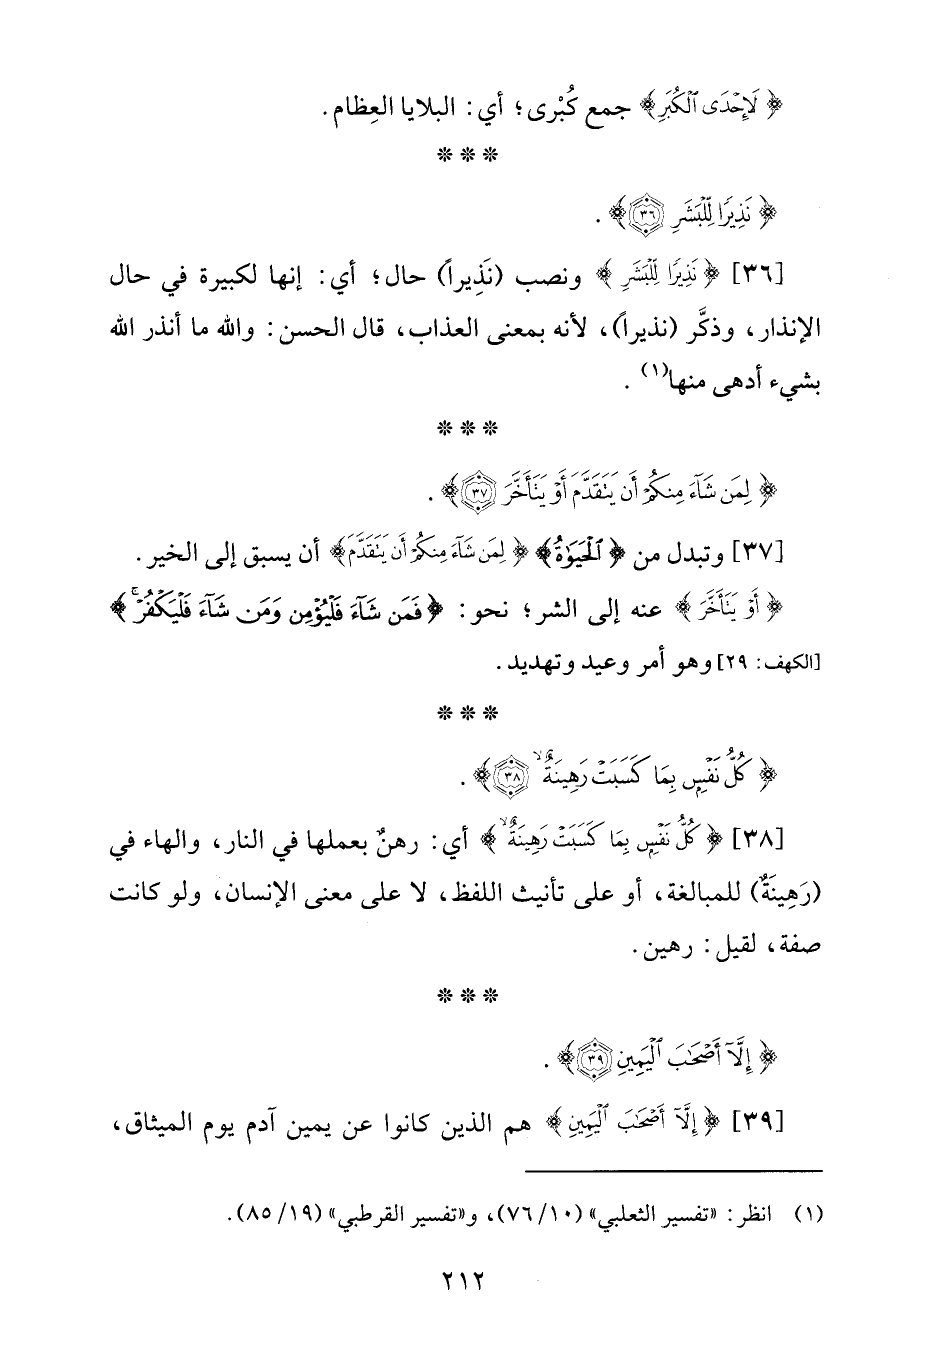 ﴿لَإِحْدَى ٱلْكُبَرِ﴾ جمع كُبْرى؛ أي: البلايا العِظام.
* * *
﴿نَذِيرًا لِّلْبَشَرِ ٣٦﴾.
[٣٦] ﴿نَذِيرًا لِّلْبَشَرِ﴾ ونصب (نَذِيراً) حال؛ أي: إنها لكبيرة في حال
الإنذار، وذكَّر (نذيراً)، لأنه بمعنى العذاب، قال الحسن: والله ما أنذر الله
بشيء أدهى منها(١).
* * *
﴿لِمَن شَآءَ مِنكُمْ أَن يَتَقَدَّمَ أَوْ يَتَأَخَّرَ ٣٧﴾.
[٣٧] وتبدل من ﴿ٱلْحَيَوٰةُ﴾ ﴿لِمَن شَآءَ مِنكُمْ أَن يَتَقَدَّمَ﴾ أن يسبق إلى الخير.
﴿أَوْ يَتَأَخَّرَ﴾ عنه إلى الشر؛ نحو: ﴿فَمَن شَآءَ فَلْيُؤْمِن وَمَن شَآءَ فَلْيَكْفُرْ ۚ﴾
[الكهف: ٢٩] وهو أمر وعيد وتهديد.
* * *
﴿كُلُّ نَفْسٍۭ بِمَا كَسَبَتْ رَهِينَةٌ ۙ ٣٨﴾.
[٣٨] ﴿كُلُّ نَفْسٍۭ بِمَا كَسَبَتْ رَهِينَةٌ ۙ﴾ أي: رهنٌ بعملها في النار، والهاء في
(رَهِينَةٌ) للمبالغة، أو على تأنيث اللفظ، لا على معنى الإنسان، ولو كانت
صفة، لقيل: رهين.
* * *
﴿إِلَّآ أَصْحَٰبَ ٱلْيَمِينِ ٣٩﴾.
[٣٩] ﴿إِلَّآ أَصْحَٰبَ ٱلْيَمِينِ﴾ هم الذين كانوا عن يمين آدم يوم الميثاق،
(١) انظر: «تفسير الثعلبي» (١٠/ ٧٦)، و«تفسير القرطبي» (١٩/ ٨٥).
٢١٢